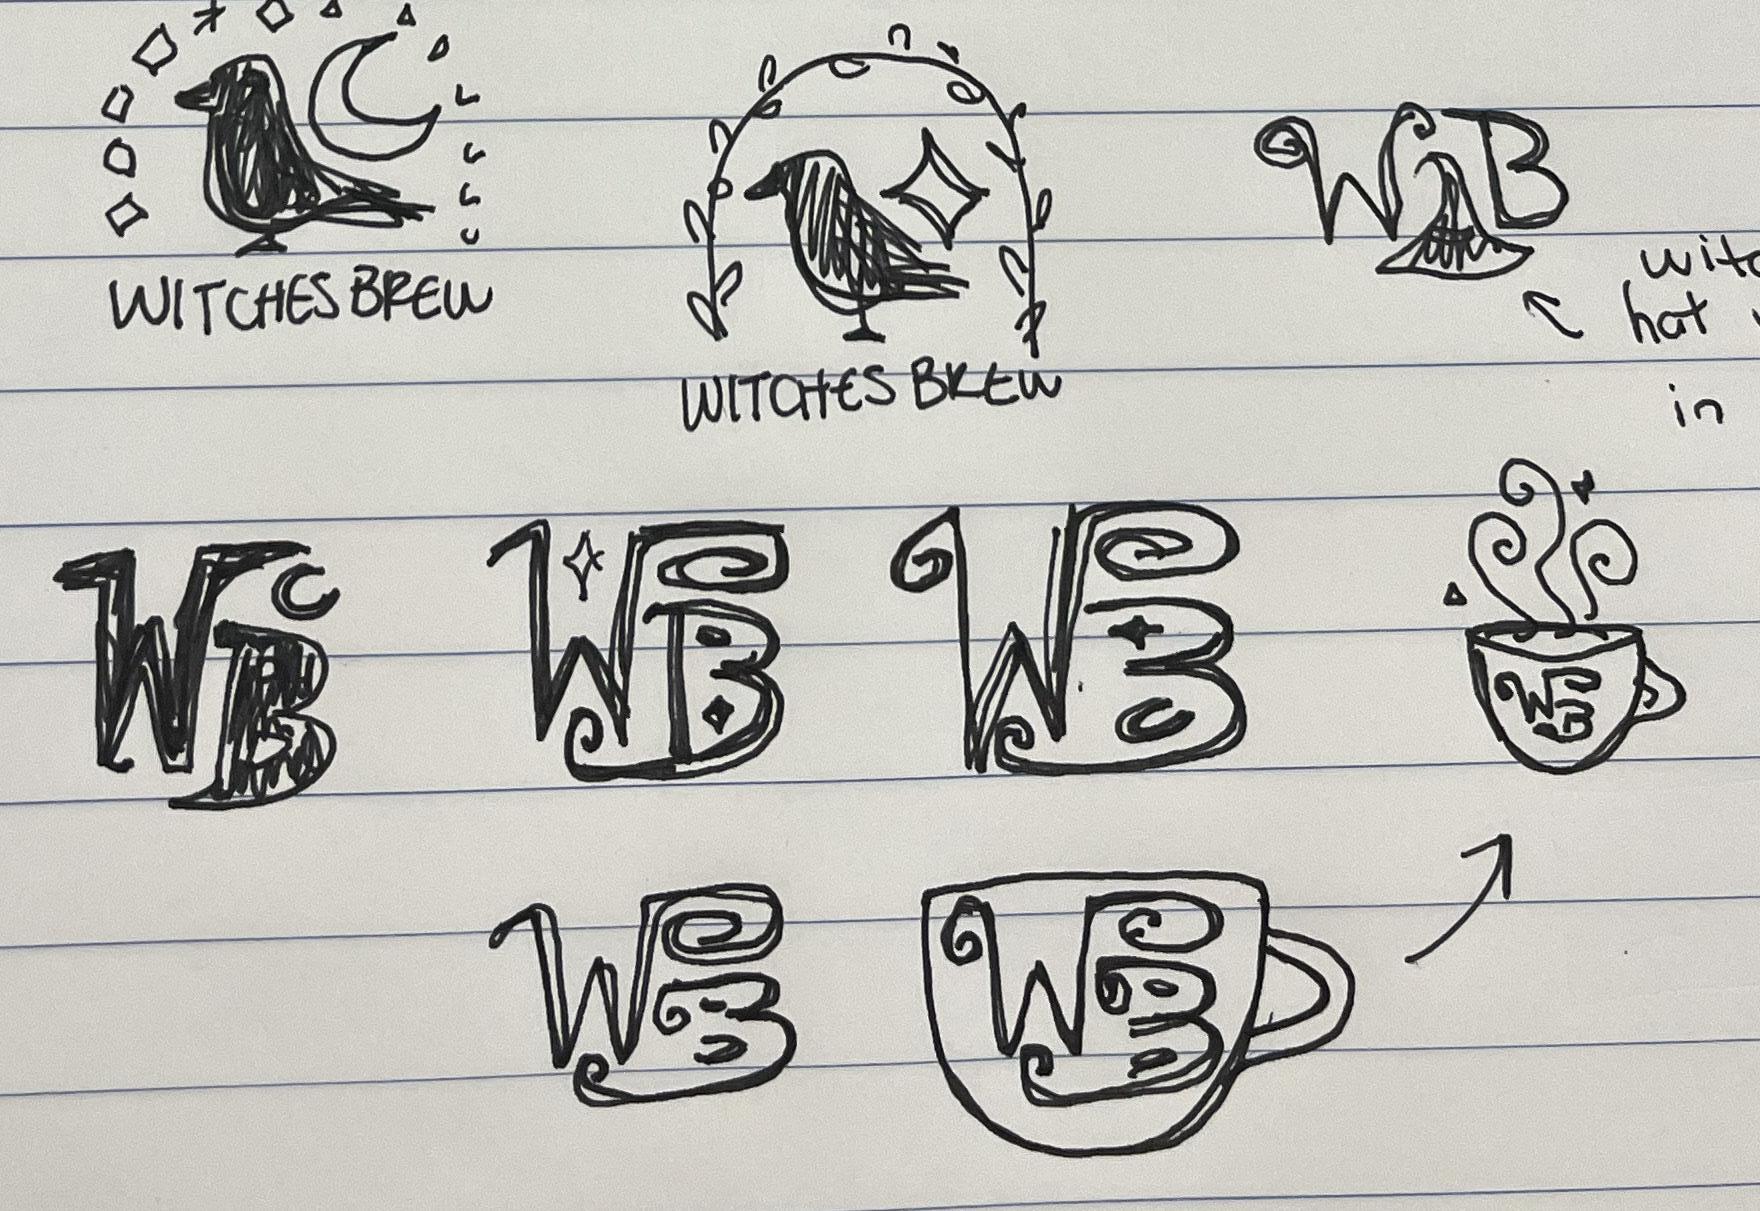 WITCHES BREW
WITCHES BREW
WB
hat
in
WB
WB
WB
WB
WB
WB